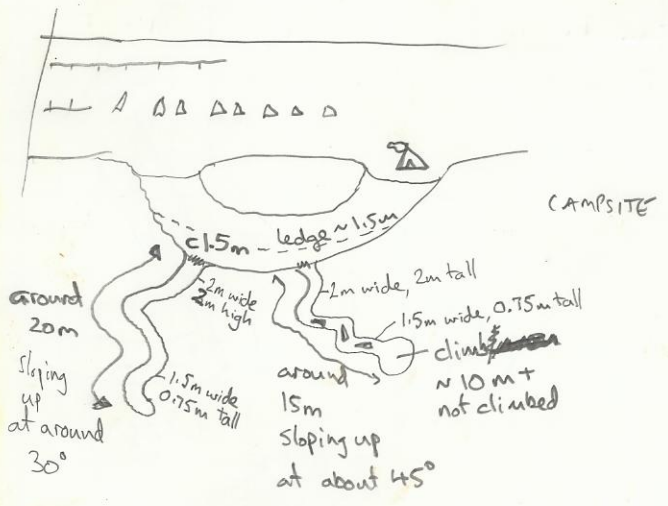 CAMPSITE
c1.5m
ledge ~ 1.5m
2m wide
2m high
2m wide, 2m tall
1.5m wide, 0.75m tall
around
20m
sloping
up
at around
30°
1.5m wide
0.75m tall
around
15m
sloping up
at about 45°
climb
~ 10m +
not climbed